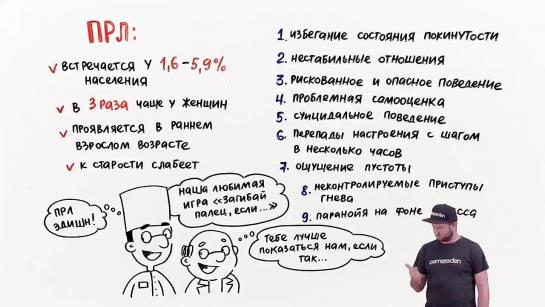 ПРЛ:
встречается у 1,6-5,9%
населения
в 3 раза чаще у женщин
проявляется в раннем
взрослом возрасте
к старости слабеет
1. избегание состояния покинутости
2. нестабильные отношения
3. рискованное и опасное поведение
4. проблемная самооценка
5. суицидальное поведение
6. перепады настроения с шагом
в несколько часов
7. ощущение пустоты
8. неконтролируемые приступы
гнева
9. паранойя на фоне
ПРЛ
эдишн!
наша любимая
игра «Загибай
палец, если...»
Тебе лучше
показаться нам, если
так...